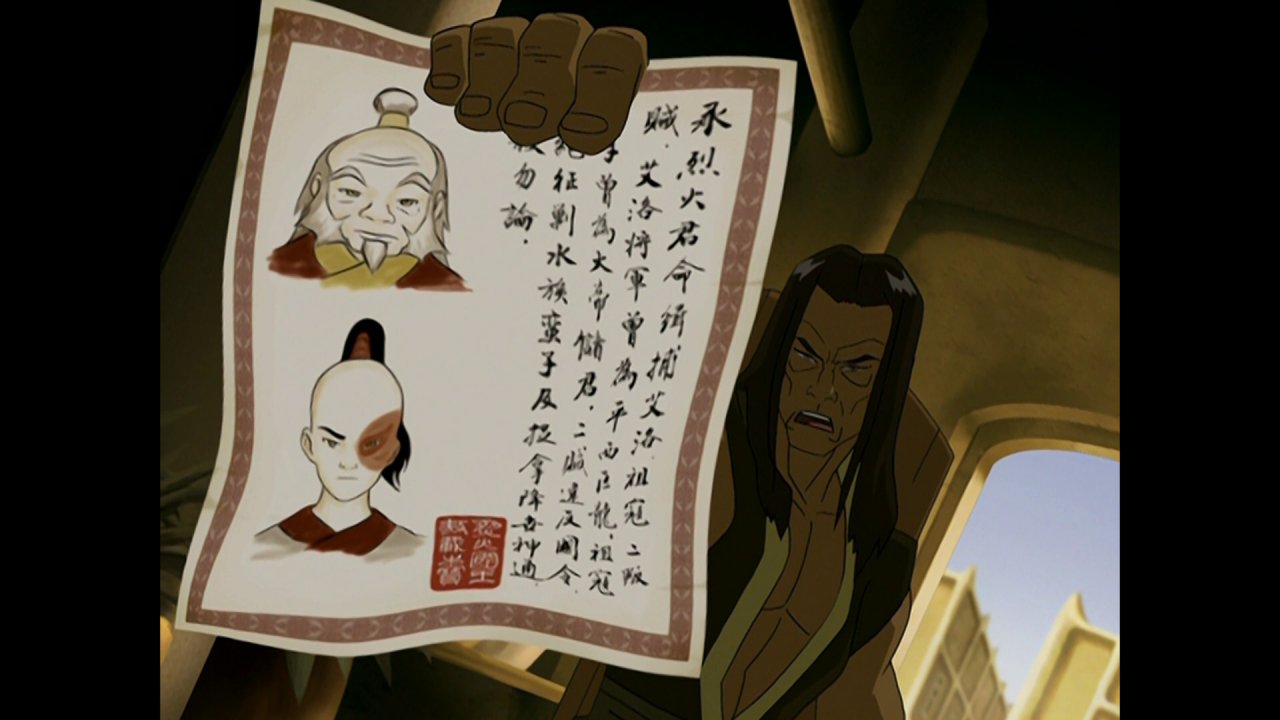 承烈火君命緝捕艾洛.祖寇二叛
賊.艾洛將軍曾為平西巨龍,祖寇
子曾為大帝儲君.二賊違反國令.
絕征剿水族蠻子及捉拿降世神通.
殺勿論.